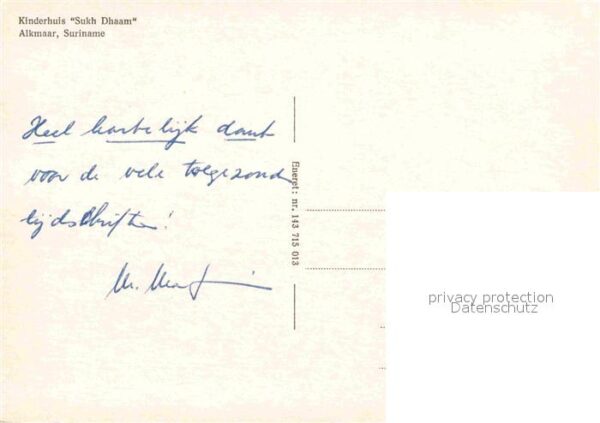 Kinderhuis "Sukh Dhaam"
Alkmaar, Suriname
Heel hartelijk dank
voor de vele toegezond
tijdschriften!
Eneret: nr. 143 715 013
privacy protection
Datenschutz